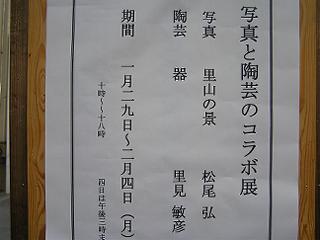 写真と陶芸のコラボ展
写真　里山の景　松尾　弘
陶芸　器　里見　敏彦
期間　一月二九日～二月四日（月）
十時～十八時　四日は午後三時ま